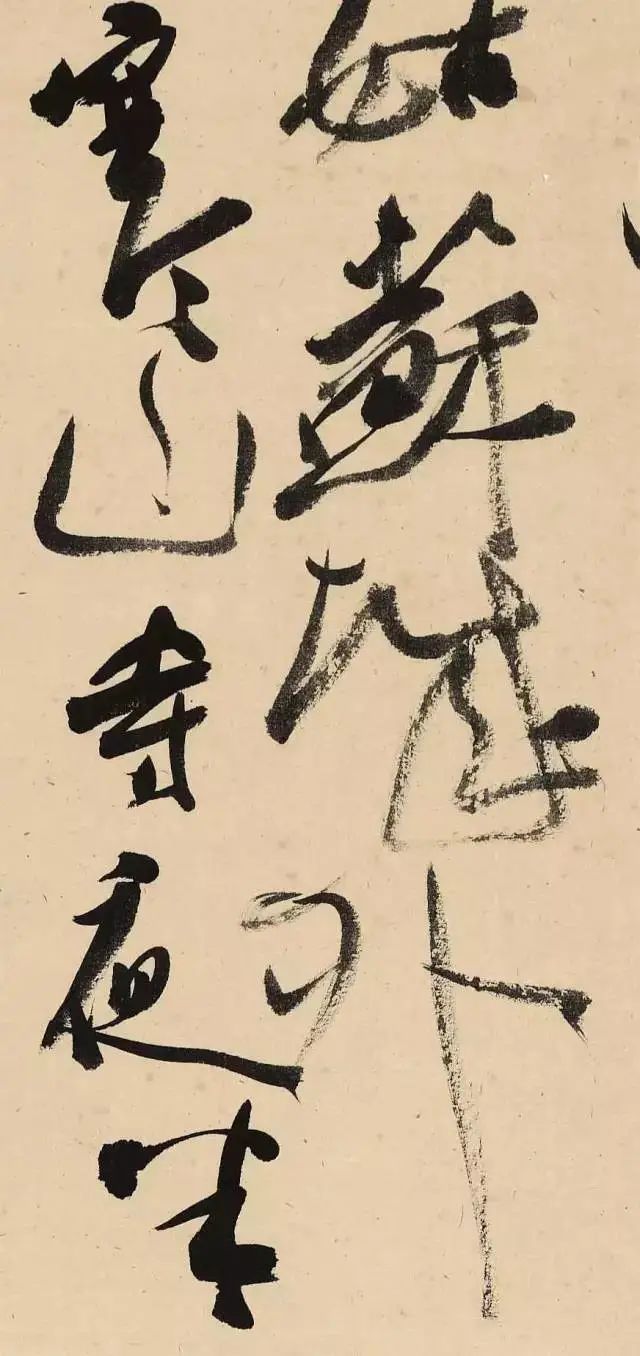 姑蘇城外
寒山寺夜半